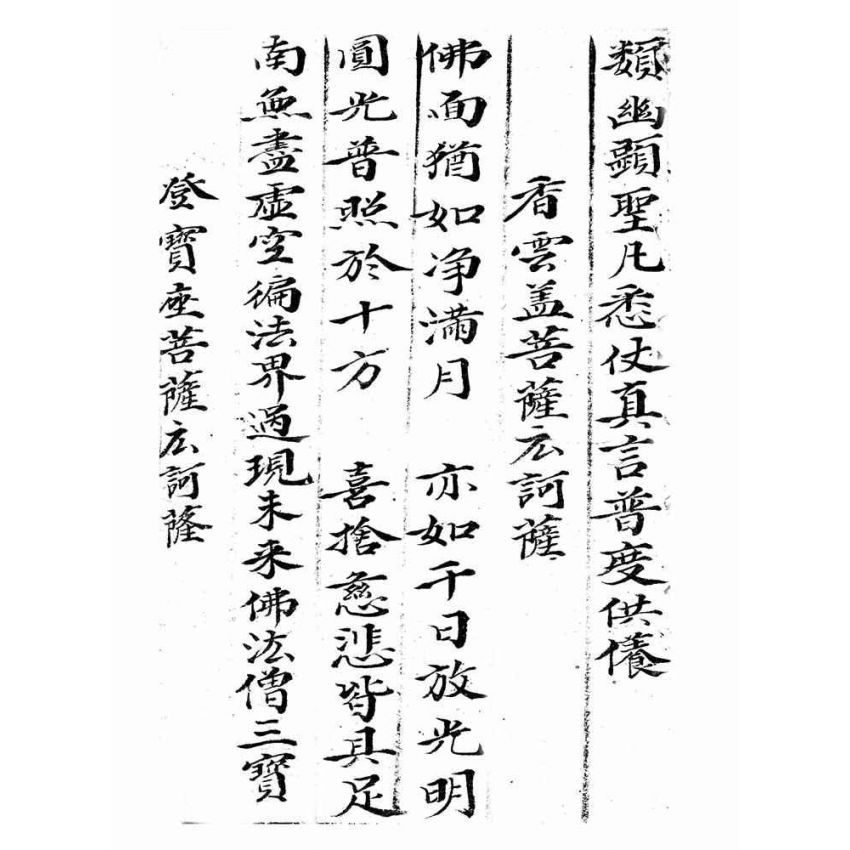 類幽顯聖凡悉仗真言普度供儀
香雲盖菩薩広訶薩
佛面猶如净滿月　亦如千日放光明
圓光普照於十方　喜捨慈悲皆具足
南無盡虛空徧法界過現未来佛法僧三寶
登寶座菩薩広訶薩